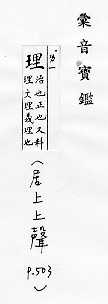 彙音寶鑑
理
治也正也又料
理文理義理也
(居上上聲
p.503)